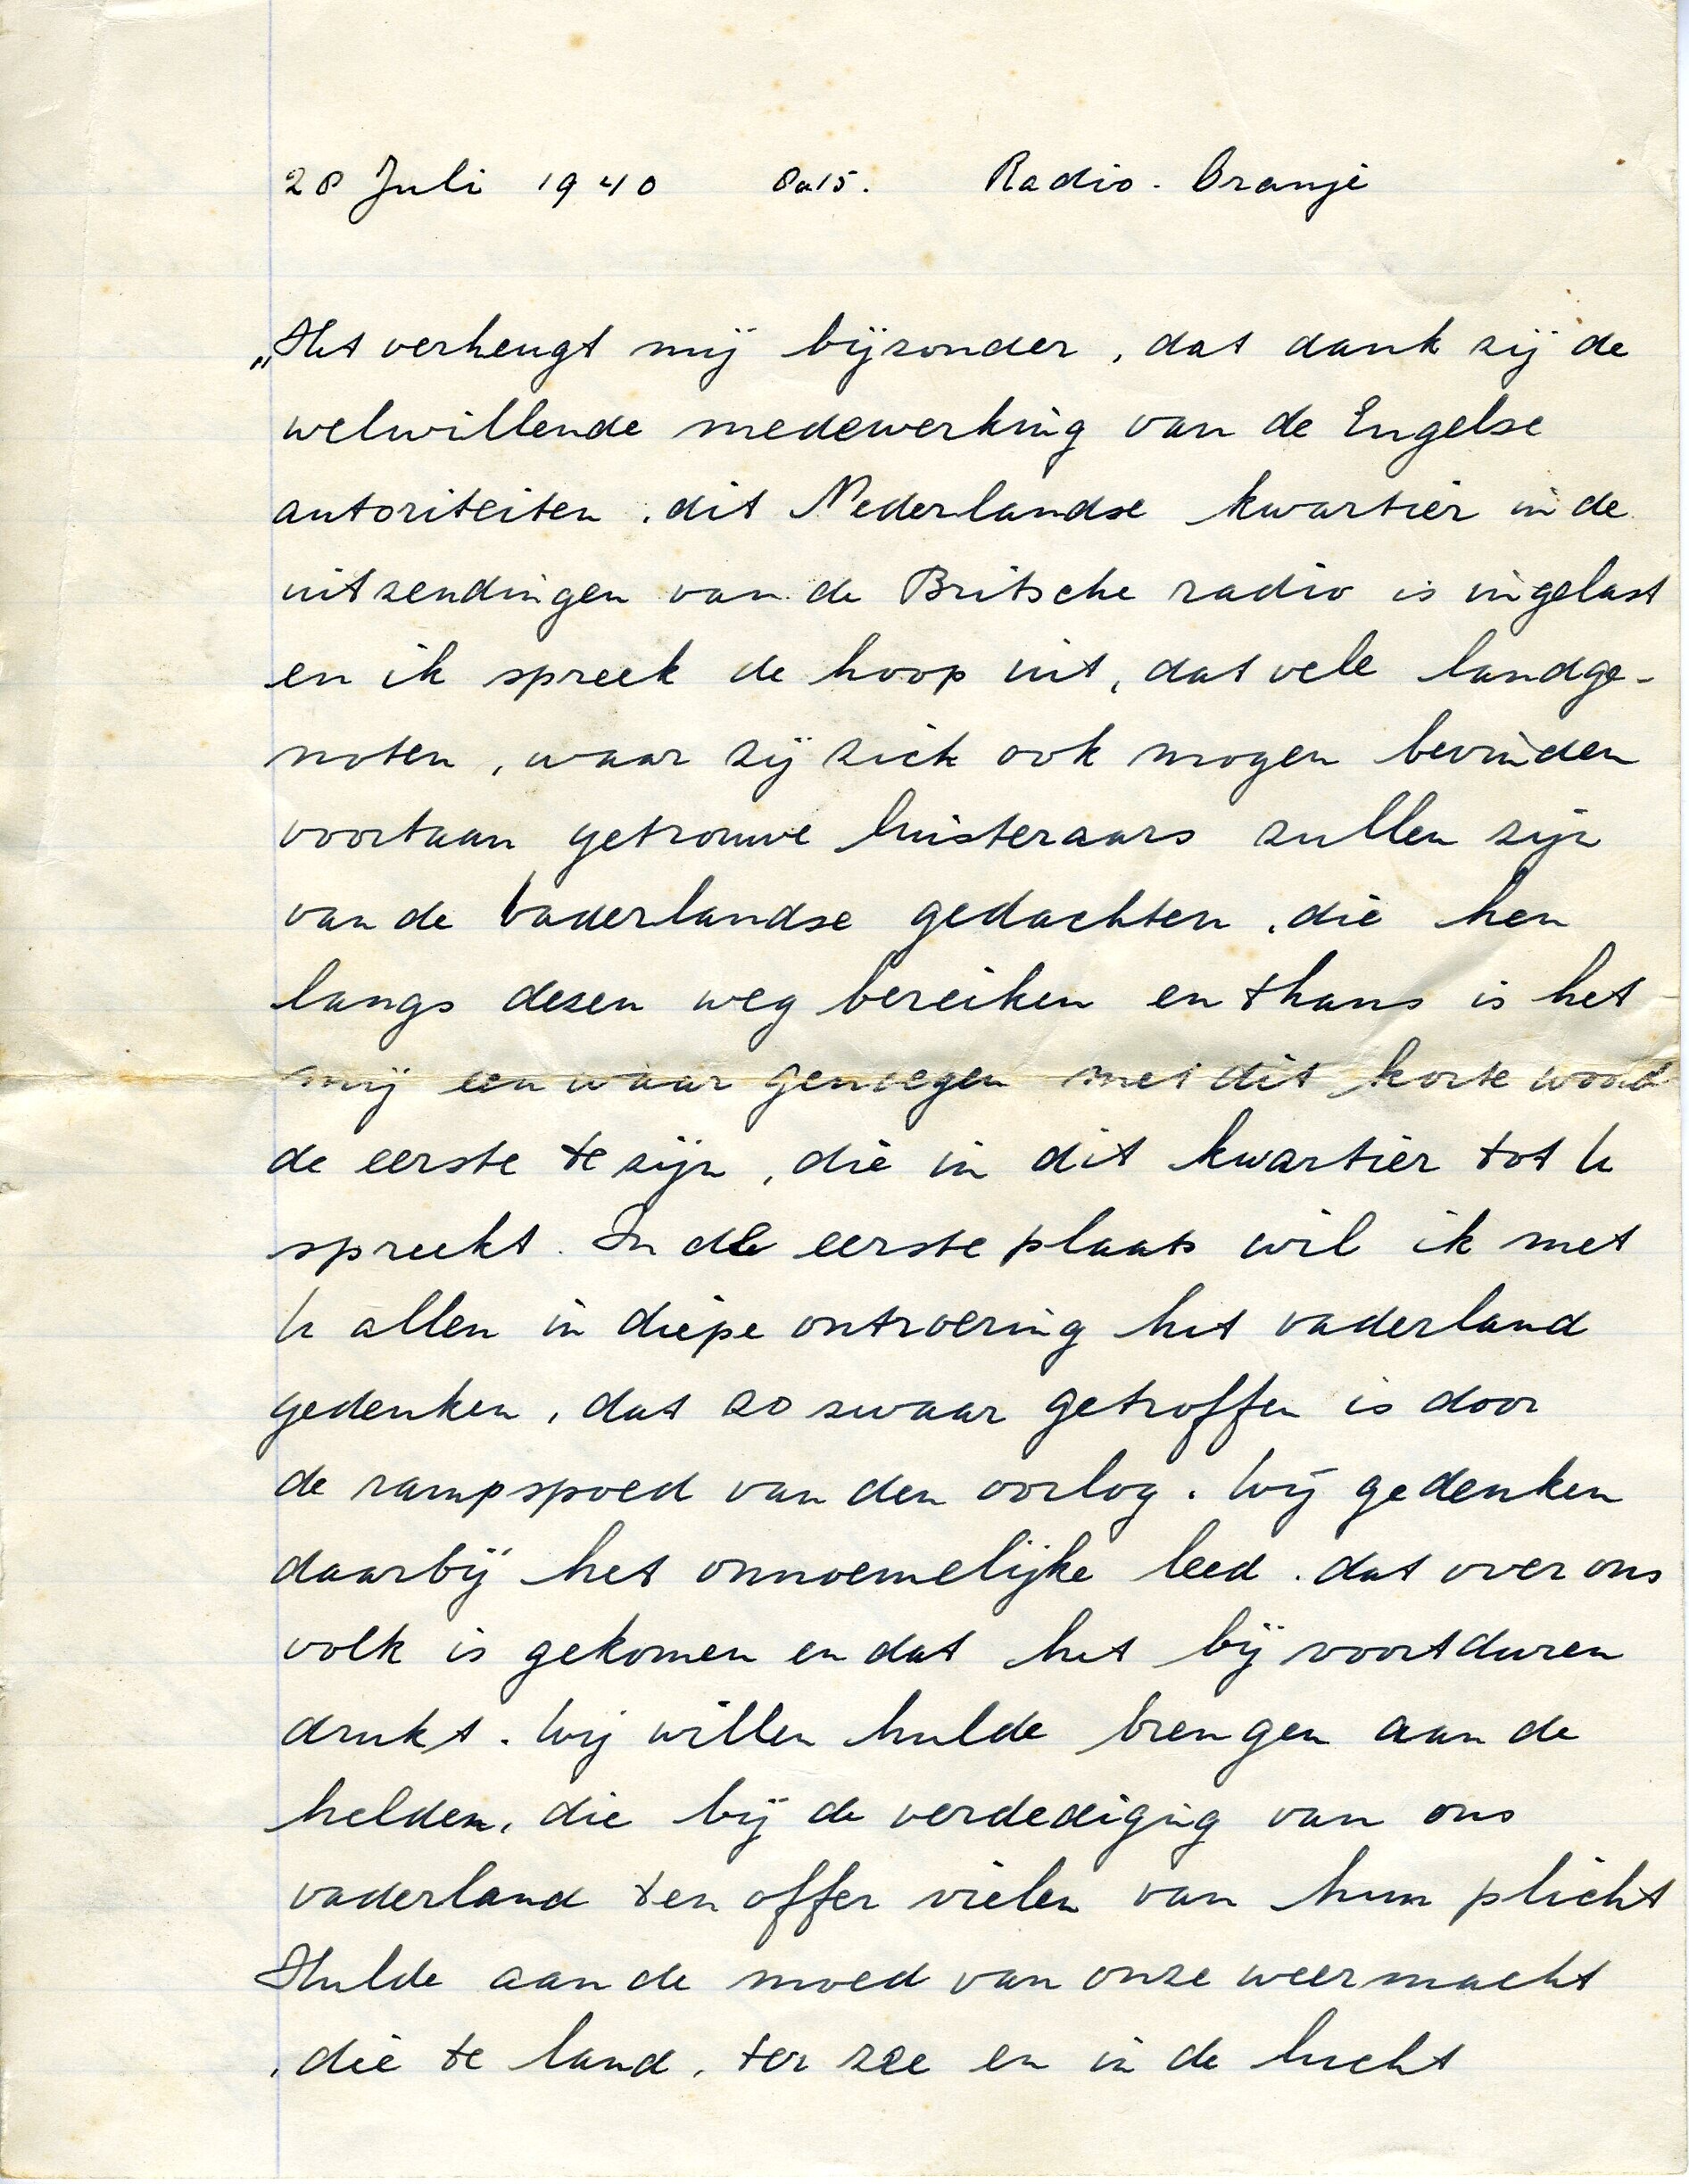 28 Juli 1940 8u15. Radio-Oranje
„Het verheugt mij bijzonder, dat dank zij de
welwillende medewerking van de Engelse
autoriteiten, dit Nederlandse kwartier in de
uitzendingen van de Britsche radio is ingelast
en ik spreek de hoop uit, dat vele landge-
noten, waar zij zich ook mogen bevinden
voortaan getrouwe luisteraars zullen zijn
van de Vaderlandse gedachten, die hen
langs dezen weg bereiken en thans is het
mij een waar genoegen met dit korte woord
de eerste te zijn, die in dit kwartier tot U
spreekt. In de eerste plaats wil ik met
U allen in diepe ontroering het vaderland
gedenken, dat zo zwaar getroffen is door
de rampspoed van den oorlog. Wij gedenken
daarbij het onnoemelijke leed. dat over ons
volk is gekomen en dat het bij voortduren
drukt. Wij willen hulde brengen aan de
helden, die bij de verdediging van ons
vaderland ten offer vielen van hun plicht
Hulde aan de moed van onze weermacht
, die te land, ter zee en in de lucht